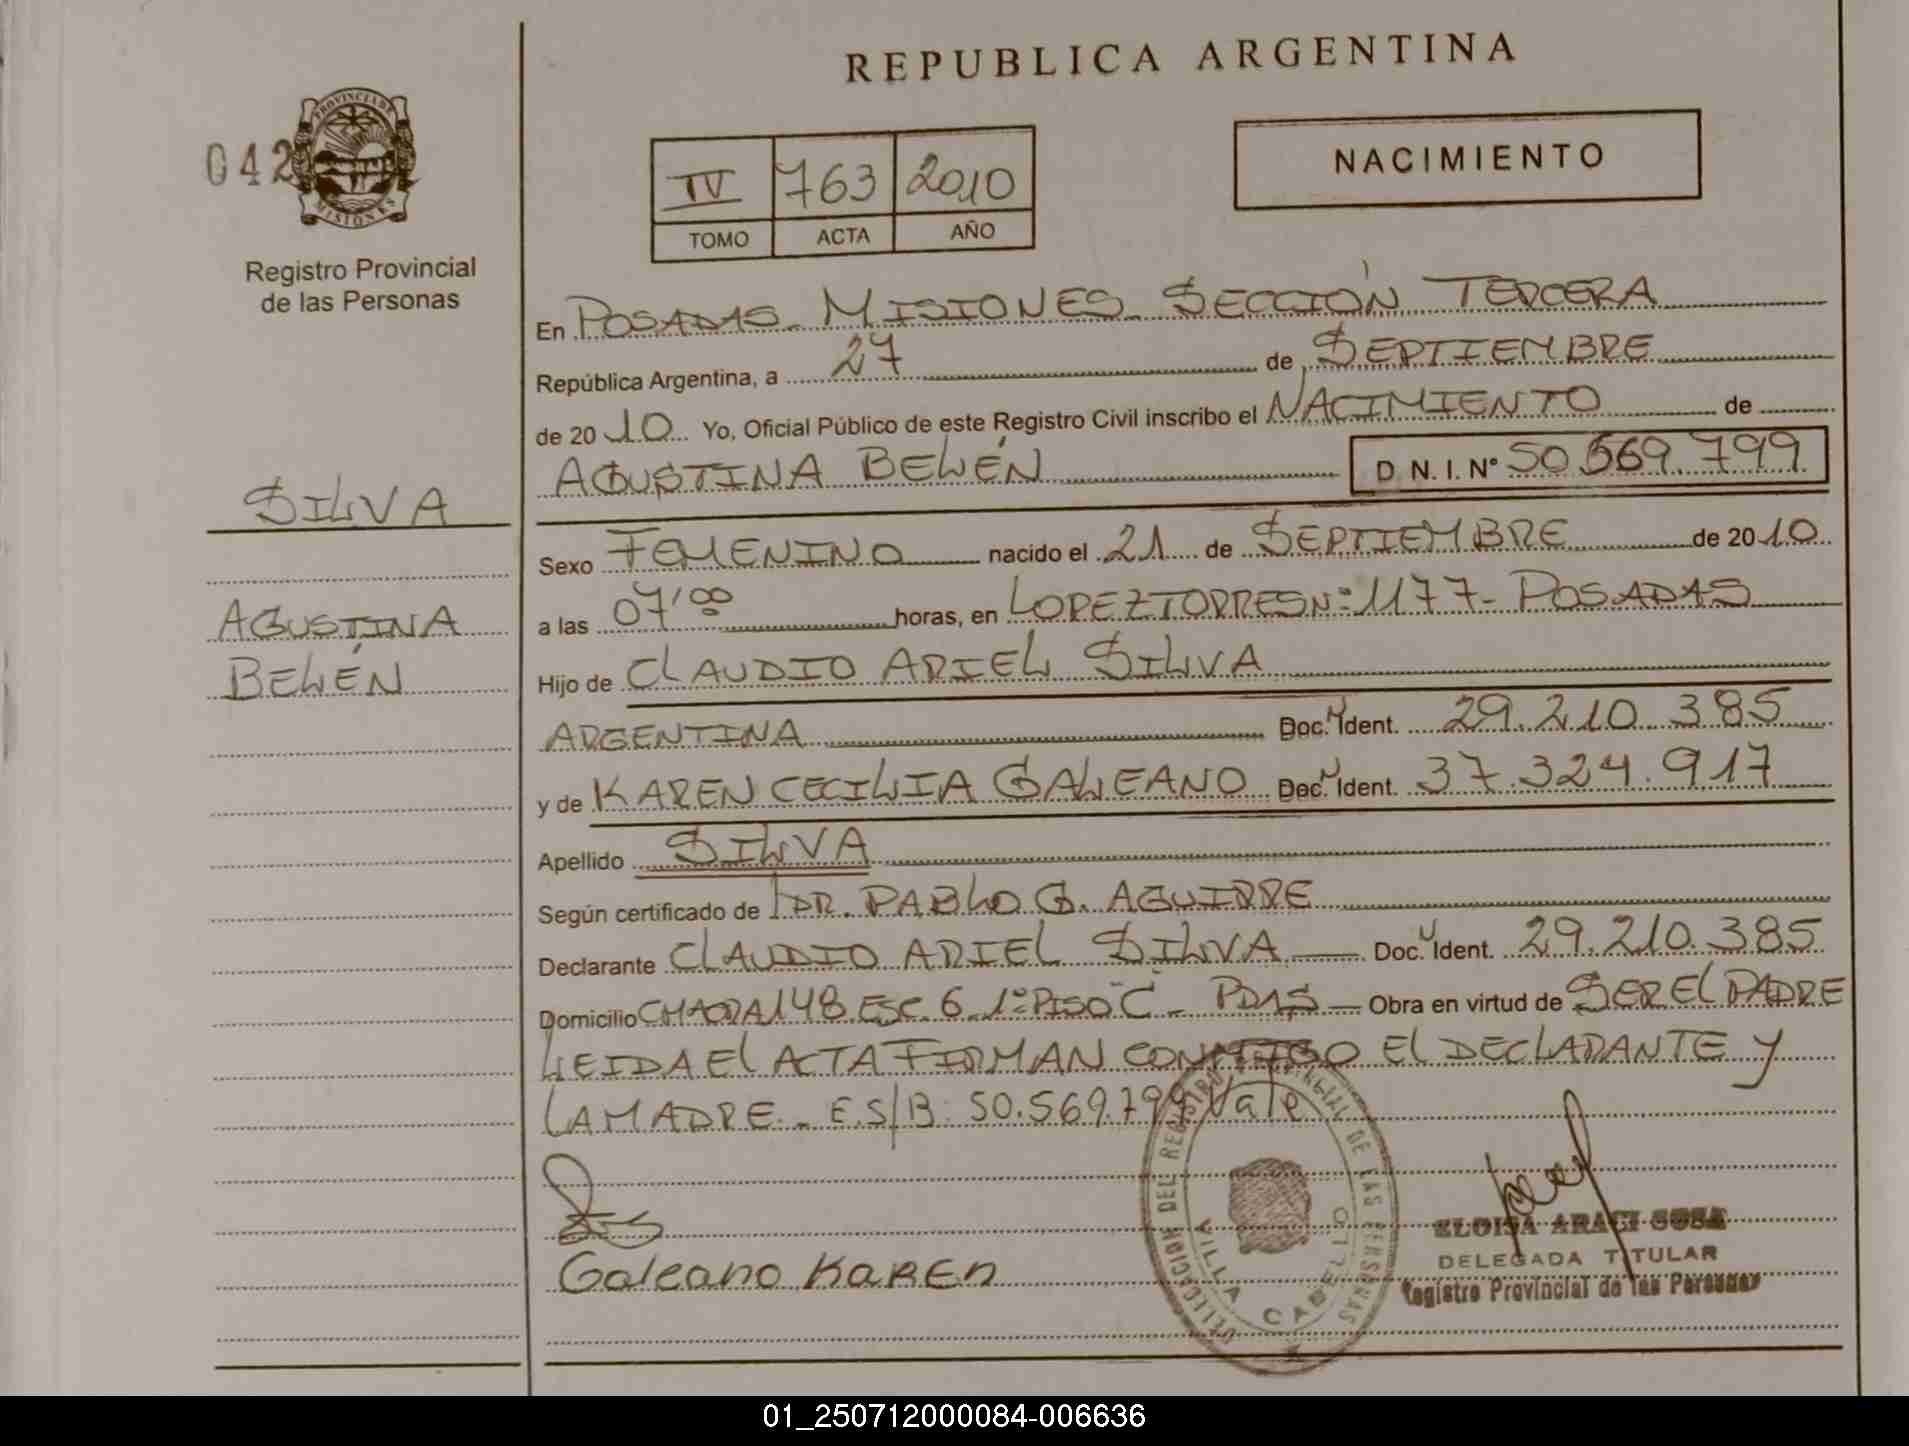 REPUBLICA ARGENTINA
042
PROVINCIA DE
MISIONES
Registro Provincial
de las Personas
NACIMIENTO
IV 763 2010
TOMO ACTA AÑO
En POSADAS - MISIONES - SECCIÓN TERCERA
República Argentina, a 27 de SEPTIEMBRE
de 20 10 Yo, Oficial Público de este Registro Civil inscribo el NACIMIENTO de
AGUSTINA BELÉN D N. I. N° 50.569.799
SILVA
AGUSTINA
BELÉN
Sexo FEMENINO nacido el 21 de SEPTIEMBRE de 20 10
a las 07'00 horas, en LOPEZ TORRES N° 1177 - POSADAS
Hijo de CLAUDIO ARIEL SILVA
ARGENTINA Doc. Ident. 29.210.385
y de KAREN CECILIA GALEANO Doc. Ident. 37.324.917
Apellido SILVA
Según certificado de DR. PABLO G. AGUIRRE
Declarante CLAUDIO ARIEL SILVA Doc. Ident. 29.210.385
Domicilio CHACRA 148 ESC. 6 1° PISO "C" - PDAS - Obra en virtud de SER EL PADRE
LEIDA El ACTA FIRMAN CONMIGO El DECLARANTE y
LA MADRE - E.S/B: 50.569.799 Vale
Galeano KAREN
DELEGACION DEL REGISTRO PROVINCIAL DE LAS PERSONAS
VILLA CABELLO
ELOISA ARACI SOSA
DELEGADA TITULAR
Registro Provincial de las Personas
01_250712000084-006636